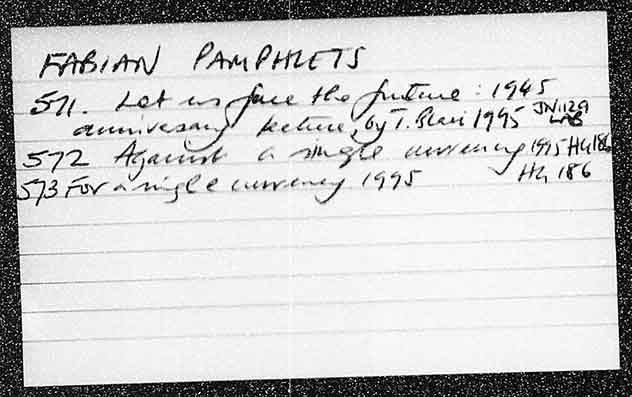 FABIAN PAMPHLETS
571. Let us face the future: 1945
anniversary lecture, by T. Blair 1995 JN.1129 LAB
572 Against a single currency 1995 HG186
573 For a single currency 1995 HG 186